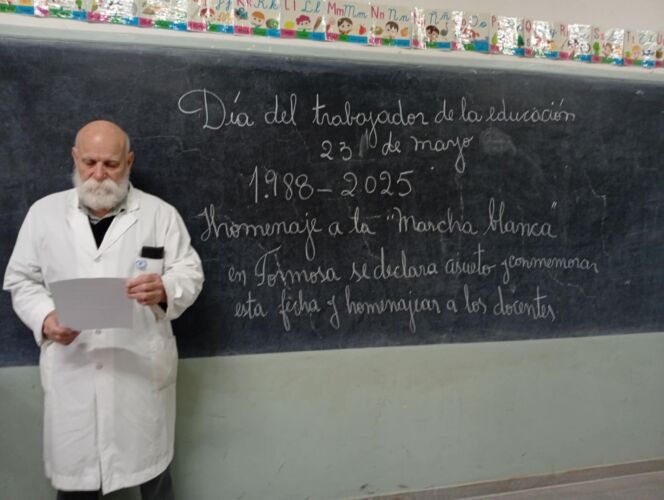 K k L l Ll Mm Nn Ñ P Q R S T U
Día del trabajador de la educación
23 de mayo
1.988 – 2025
Homenaje a la "Marcha blanca"
en Formosa se declara asueto y conmemorar
esta fecha y homenajear a los docentes.